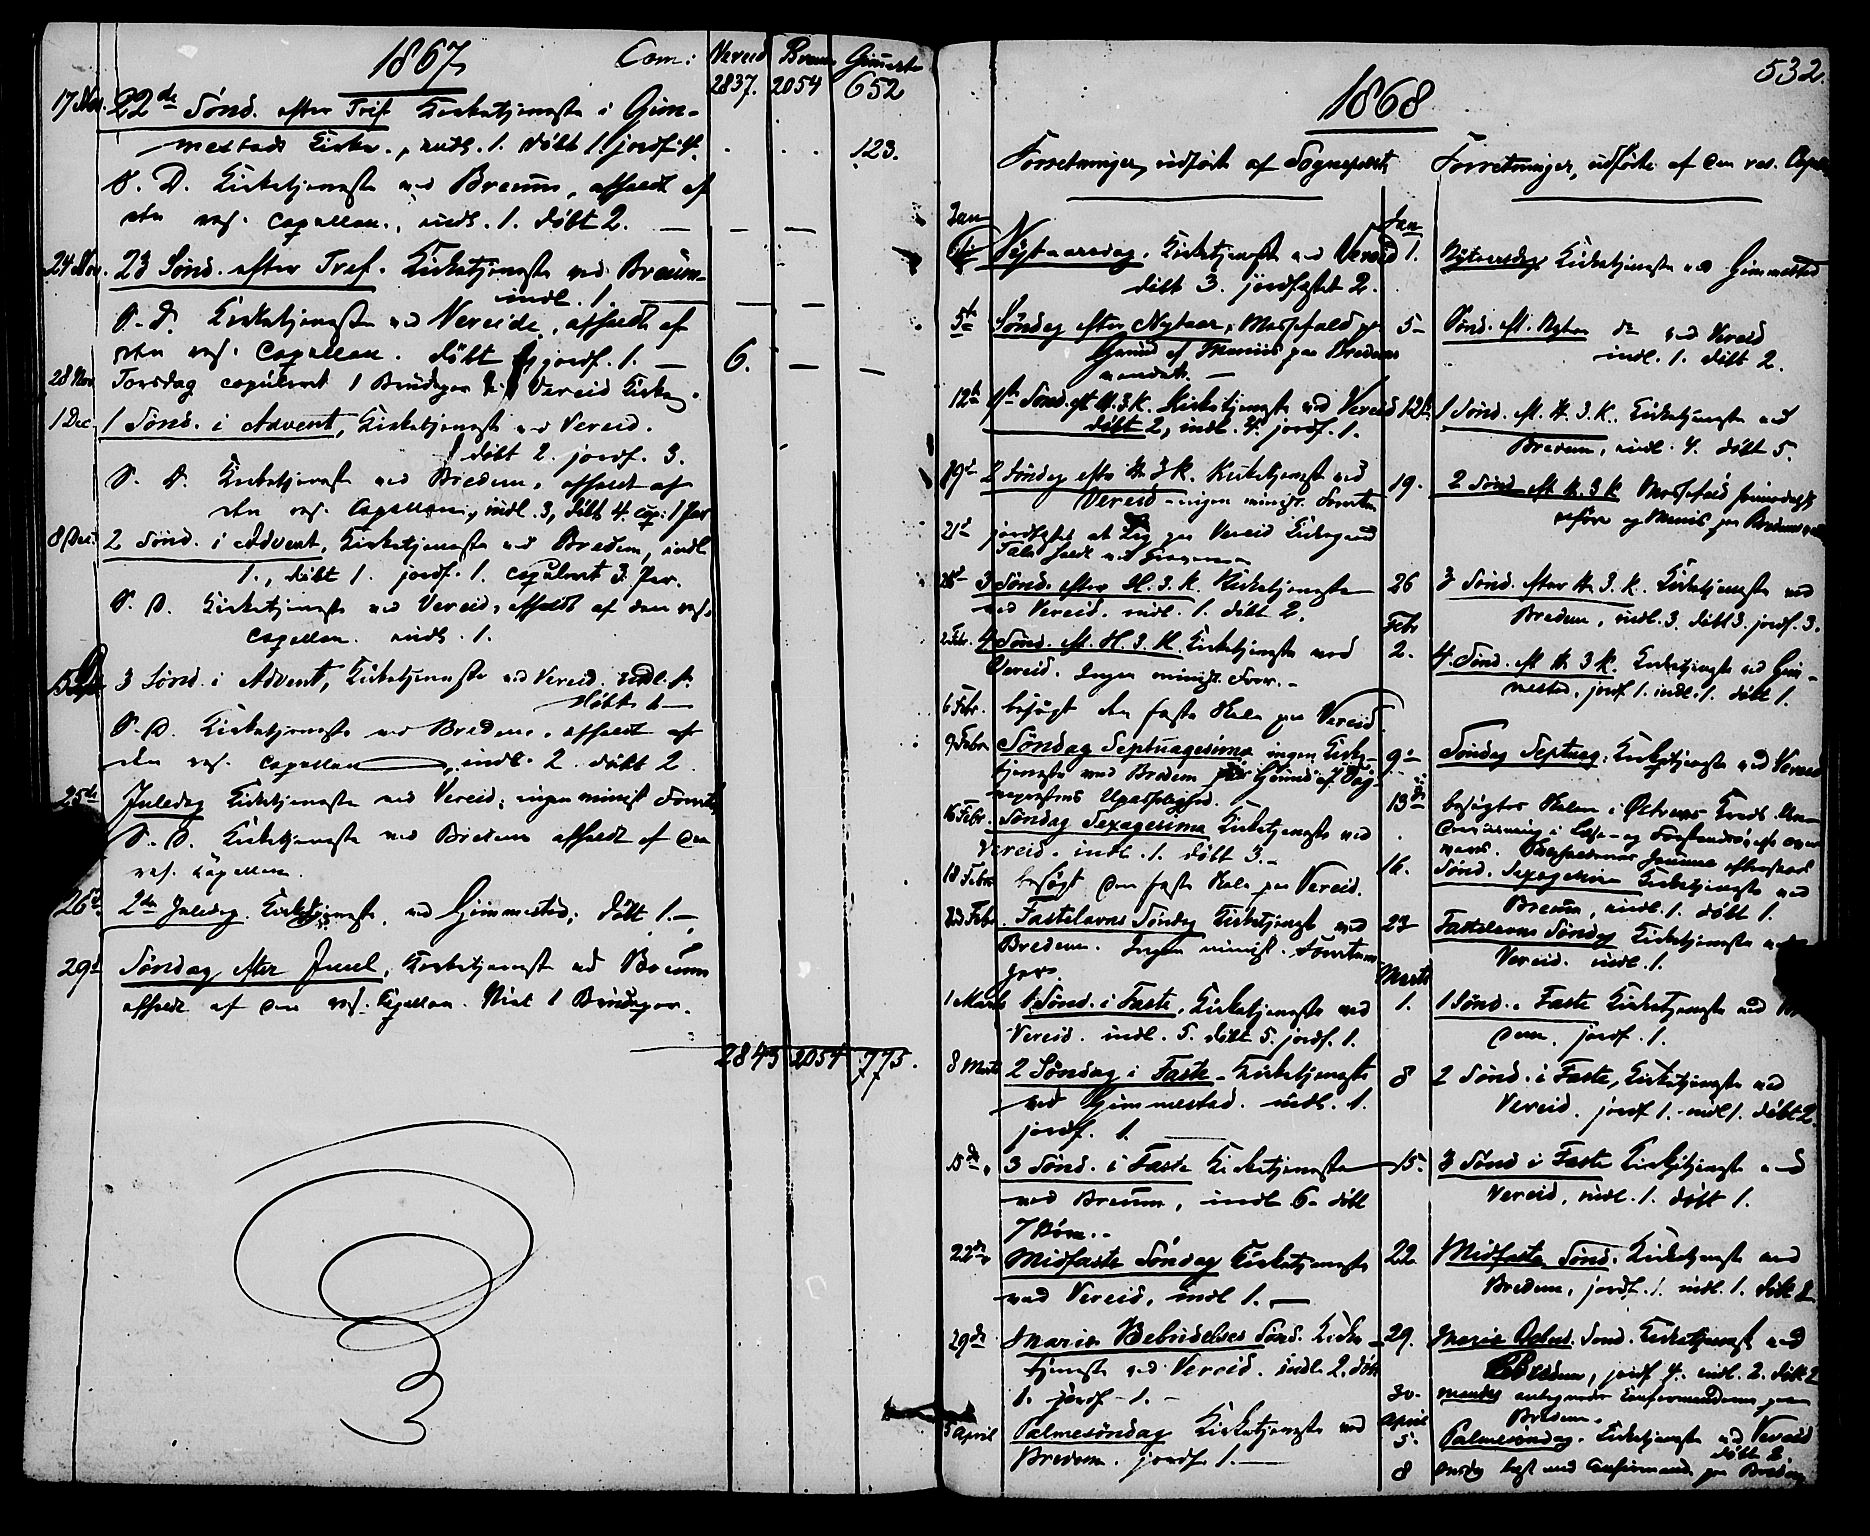 1867
Com: Vereid Breum Gimmestad
2837. 2054 652
17 Nov. 22de Sønd. efter Tref. Kirketjeneste i Gim-
mestads Kirke. indl. 1. døbt 1. jordf. 123.
S. D. Kirketjeneste ved Breum, afholdt af
den res. Capellan., indl. 1. døbt 2. — — —
24 Nov. 23 Sønd. efter Tref. Kirketjeneste ved Breum
indl. 1. — —
S. D. Kirketjeneste ved Vereide, afholdt af
den res. Capellan. døbt jordf. 1. — 6. — —
28 Nov Torsdag copuleret 1 Brudepar i Vereid Kirke.
1 Dec. 1 Sønd. i Advent, Kirketjeneste ved Vereid.
døbt 2. jordf. 3.
S. D. Kirketjeneste ved Bredem, afholdt af
den res. Capellan, indl. 3, døbt 4. cop: 1 Par
8 Dec. 2 Sønd. i Advent, Kirketjeneste ved Bredem, indl
1., døbt 1. jordf. 1. copuleret 3 Par.
S. D. Kirketjeneste ved Vereid, afholdt af den res.
Capellan. indl. 1.
3 Sønd. i Advent, Kirketjeneste ved Vereid. indl. 1.
døbt 6
S. D. Kirketjeneste ved Bredem, afholdt af
den res. Capellan, indl. 2. døbt 2
25de Juledag Kirketjeneste ved Vereid, ingen minist Forretn
S. D. Kirketjeneste ved Bredem afholdt af den
res. Capellan.
26de. 2den Juledag. Kirketjeneste ved Gimmestad, døbt 1. —
29d Søndag efter Juul, Kirketjeneste ved Breum
afholdt af den res. Capellan. Viet 1 Brudepar.
2843 2054 775.
532.
1868
Forretninger, udførte af Sognepræst
Jan
Nytaarsdag. Kirketjeneste ved Vereid
døbt 3. jordfæstet 2.
5te Søndag efter Nytaar, Messefald
Grund af paa Bredems
12te 1ste Sønd. eft H. 3 K. Kirketjeneste ved Vereid
døbt 2, indl. 4. jordf. 1.
19de 2 Søndag efter H 3 K. Kirketjeneste ved
Vereid – ingen minist. Forretn
21d jordfæstet et Lig paa Vereid Kirkegaard
Tale holdt
26d 3 Sønd. efter H. 3. K. Kirketjeneste
ved Vereid. indl. 1. døbt 2.
2 Febr. 4 Sønd. eft. H. 3. K. Kirketjeneste ved
Vereid. Ingen minist. Forr. –
6 Febr. besøgt den faste Skole paa Vereid
9 Febr Søndag Septuagesima ingen Kirke-
tjeneste ved Bredem Grund af Sog-
nepræstens Upasselighed.
16 Febr. Søndag Sexagesima Kirketjeneste ved
Vereid. indl. 1. døbt 3. –
18 Febr. besøgt den faste Skole paa Vereid.
Febr. Fastelavns Søndag Kirketjeneste ved
Bredem. Ingen minist. Forretnin-
ger.
1 Marts 1 Sønd. i Faste, Kirketjeneste ved
Vereid. indl. 5. døbt 5. jordf. 1.
8 Marts 2 Søndag i Faste – Kirketjeneste
ved Gimmestad. indl. 1.
jordf. 1.
15de. 3 Sønd. i Faste Kirketjeneste
ved Breum, indl. 6. døbt
7 Børn. –
22de Midfaste Søndag Kirketjeneste
ved Vereid, indl 1. —
29de Mariæ Bebudelses Sønd. Kirke-
tjeneste ved Vereid. indl. 2. døbt
1. jordf – 1. –
5 April Palmesøndag Kirketjeneste ved
Bredem. jordf. 1. —
Forretninger, udførte af den res. Capellan
Jan
1. Nytaarsdag Kirketjeneste ved Gimmestad
5 – Sønd. eft. Nytaar do ved Vereid
indl. 1. døbt 2.
12te 1 Sønd. eft. H. 3. K. Kirketjeneste ved
Bredem, indl. 4. døbt 5.
19. 2 Sønd eft H. 3 K Messefald
paa Bredem
26 3 Sønd. efter H. 3. K. Kirketjeneste ved
Bredem, indl. 3. døbt 3. jordf. 3.
Febr
2. 4. Sønd. eft H. 3 K. Kirketjeneste ved Gim-
mestad, jordf 1. indl. 1. døbt 1.
9de Søndag Septuag. Kirketjeneste ved Vereid
13de besøgtes Skolen i Kreds.
16. Sønd. Sexagesima Kirketjeneste ved
Breum, indl. 1. døbt 1.
23 Fastelavns Søndag Kirketjeneste ved
Vereid. indl. 1.
Marts
1. 1 Sønd. i Faste Kirketjeneste ved Bre
dem. jordf. 1.
8 2 Sønd. i Faste, Kirketjeneste ved
Vereid. jordf 1. – indl 1. døbt 2
15. 3 Sønd i Faste Kirketjeneste ved
Vereid, indl. 1. døbt 1.
22 Midfaste Sønd. Kirketjeneste ved
Bredem, jordf. 1. indl. 1. døbt 2
29. Mariæ Bebud. Sønd. Kirketjeneste ved
Bredem, jordf 4. indl. 2. døbt 2
30. Mandag Confirmanderne paa
Bredem.
April
5. Palmesøndag. Kirketjeneste ved Vereid
døbt 2
8 Onsdag læst med Confirmander paa Bredem